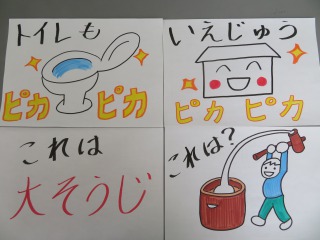 トイレも
ピカ ピカ
いえじゅう
ピカ ピカ
これは
大そうじ
これは?